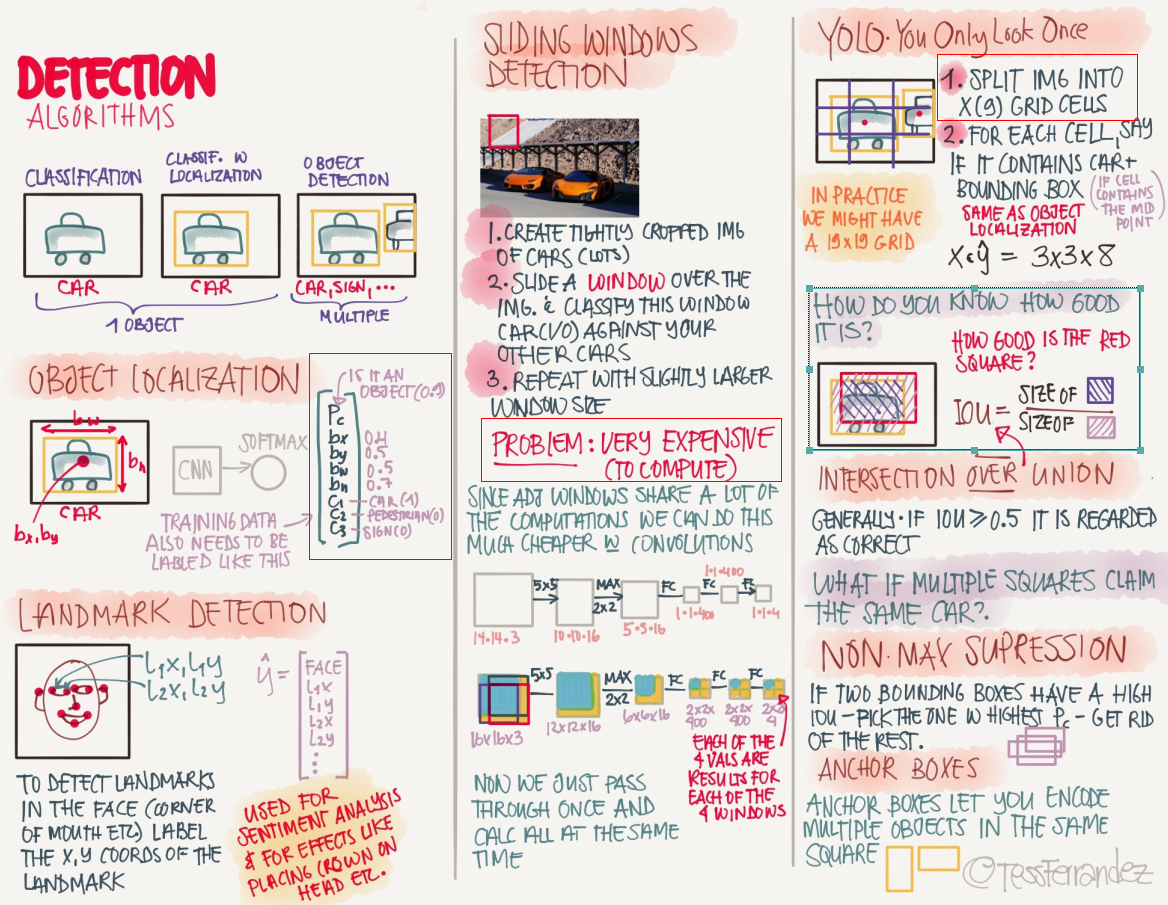 DETECTION
ALGORITHMS
CLASSIFICATION
CLASSIF. W
LOCALIZATION
OBJECT
DETECTION
CAR
CAR
CAR, SIGN, ...
1 OBJECT
MULTIPLE
OBJECT LOCALIZATION
bw
bh
bx, by
CAR
CNN
SOFTMAX
IS IT AN
OBJECT (0.9)
Pc
bx 0.4
by 0.5
bw 0.5
bh 0.7
C1 - CAR (1)
C2 - PEDESTRIAN (0)
C3 - SIGN (0)
TRAINING DATA
ALSO NEEDS TO BE
LABLED LIKE THIS
LANDMARK DETECTION
L1X, L1Y
L2X, L2Y
ŷ =
FACE
L1X
L1Y
L2X
L2Y
TO DETECT LANDMARKS
IN THE FACE (CORNER
OF MOUTH ETC) LABEL
THE X,Y COORDS OF THE
LANDMARK
USED FOR
SENTIMENT ANALYSIS
& FOR EFFECTS LIKE
PLACING CROWN ON
HEAD ETC.
SLIDING WINDOWS
DETECTION
1. CREATE TIGHTLY CROPPED IMG
OF CARS (LOTS)
2. SLIDE A WINDOW OVER THE
IMG. & CLASSIFY THIS WINDOW
CAR(1/0) AGAINST YOUR
OTHER CARS
3. REPEAT WITH SLIGHTLY LARGER
WINDOW SIZE
PROBLEM: VERY EXPENSIVE
(TO COMPUTE)
SINCE ADJ WINDOWS SHARE A LOT OF
THE COMPUTATIONS WE CAN DO THIS
MUCH CHEAPER W CONVOLUTIONS
5x5
MAX
2x2
FC
FC
1·1·400
FC
14·14·3
10·10·16
5·5·16
1·1·400
1·1·4
5x5
MAX
2x2
FC
FC
FC
16x16x3
12x12x16
6x6x16
2x2x
400
2x2x
400
2x2x
4
EACH OF THE
4 VALS ARE
RESULTS FOR
EACH OF THE
4 WINDOWS
NOW WE JUST PASS
THROUGH ONCE AND
CALC ALL AT THE SAME
TIME
YOLO · You Only Look Once
1. SPLIT IMG INTO
X(9) GRID CELLS
2. FOR EACH CELL, SAY
IF IT CONTAINS CAR +
BOUNDING BOX
(IF CELL
CONTAINS
THE MID
POINT)
SAME AS OBJECT
LOCALIZATION
IN PRACTICE
WE MIGHT HAVE
A 19x19 GRID
X & ŷ = 3x3x8
HOW DO YOU KNOW HOW GOOD
IT IS?
HOW GOOD IS THE RED
SQUARE?
IOU =
SIZE OF
SIZE OF
INTERSECTION OVER UNION
GENERALLY · IF IOU ≥ 0.5 IT IS REGARDED
AS CORRECT
WHAT IF MULTIPLE SQUARES CLAIM
THE SAME CAR?
NON·MAX SUPRESSION
IF TWO BOUNDING BOXES HAVE A HIGH
IOU - PICK THE ONE W HIGHEST Pc - GET RID
OF THE REST.
ANCHOR BOXES
ANCHOR BOXES LET YOU ENCODE
MULTIPLE OBJECTS IN THE SAME
SQUARE
@TessFerrandez